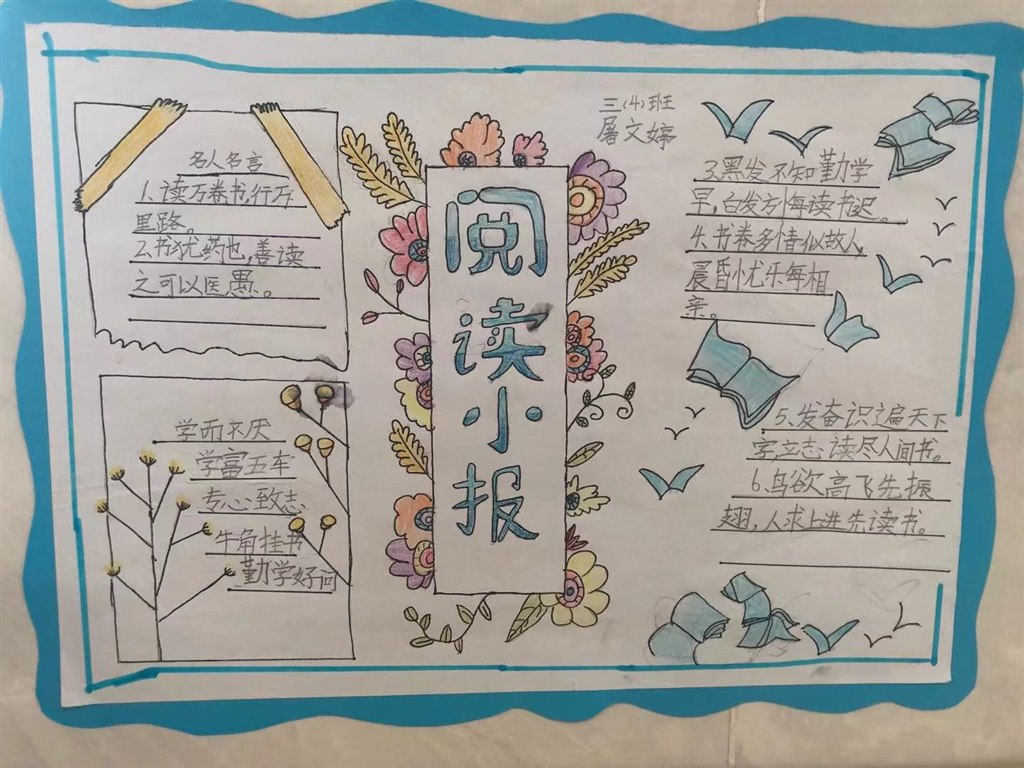 名人名言
1.读万卷书,行万
里路。
2.书犹药也,善读
之可以医愚。
学而不厌
学富五车
专心致志
牛角挂书
勤学好问
阅
读
小
报
三(4)班
屠文婷
3.黑发不知勤学
早,白发方悔读书迟。
4.书卷多情似故人,
晨昏忧乐每相
亲。
5、发奋识遍天下
字立志读尽人间书。
6、鸟欲高飞先振
翅,人求上进先读书。